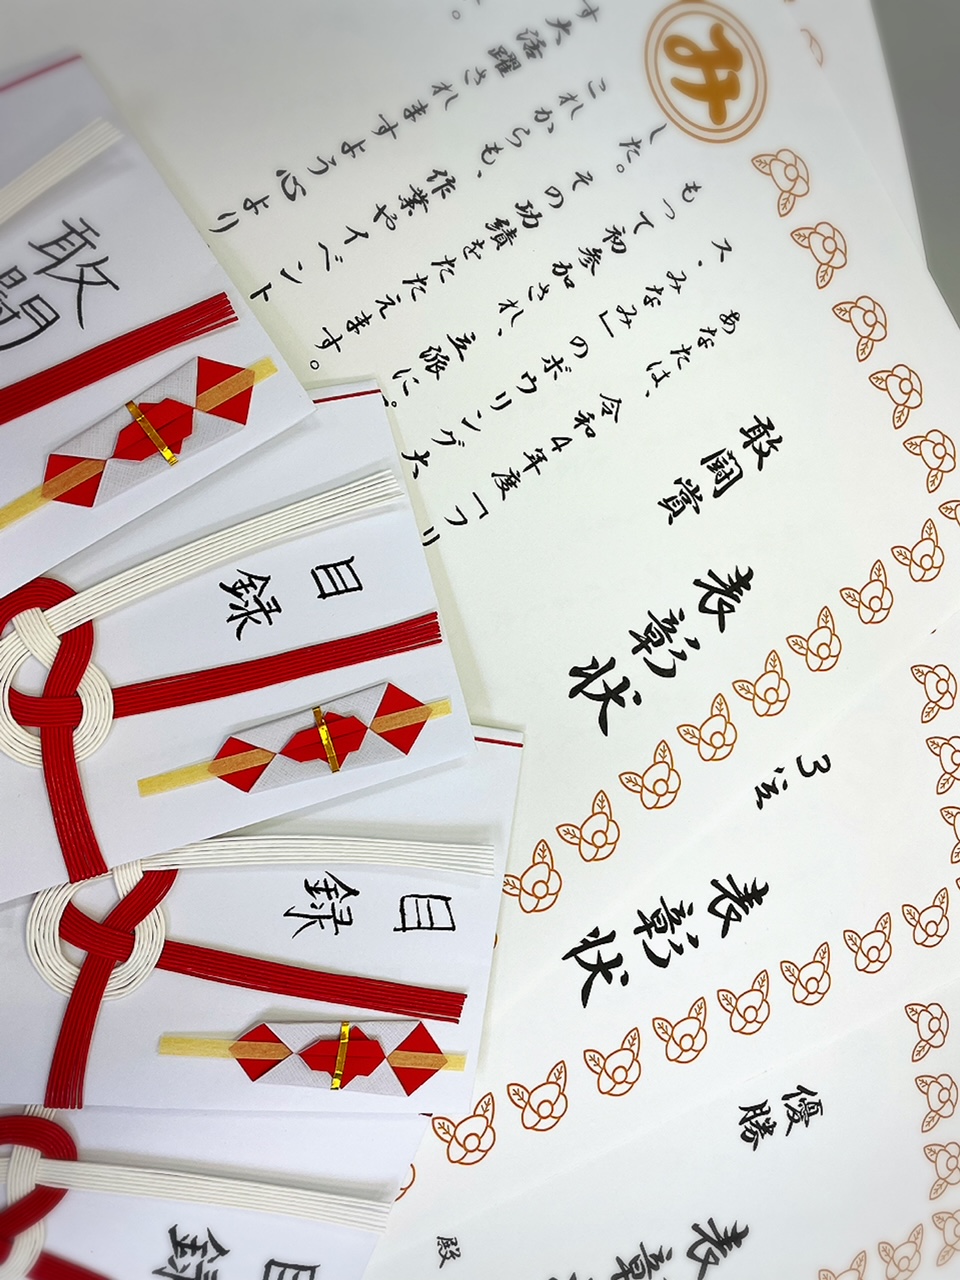 敢闘賞
表彰状
あなたは、令和4年度「フリ
ス、みなみ」のボウリング大
もって初参加され、立派に
した。その功績をたたえます。
これからも、作業やイベント
す大活躍されますよう心より
。
3位
表彰状
優勝
表彰
殿
敢闘
目録
目録
目録